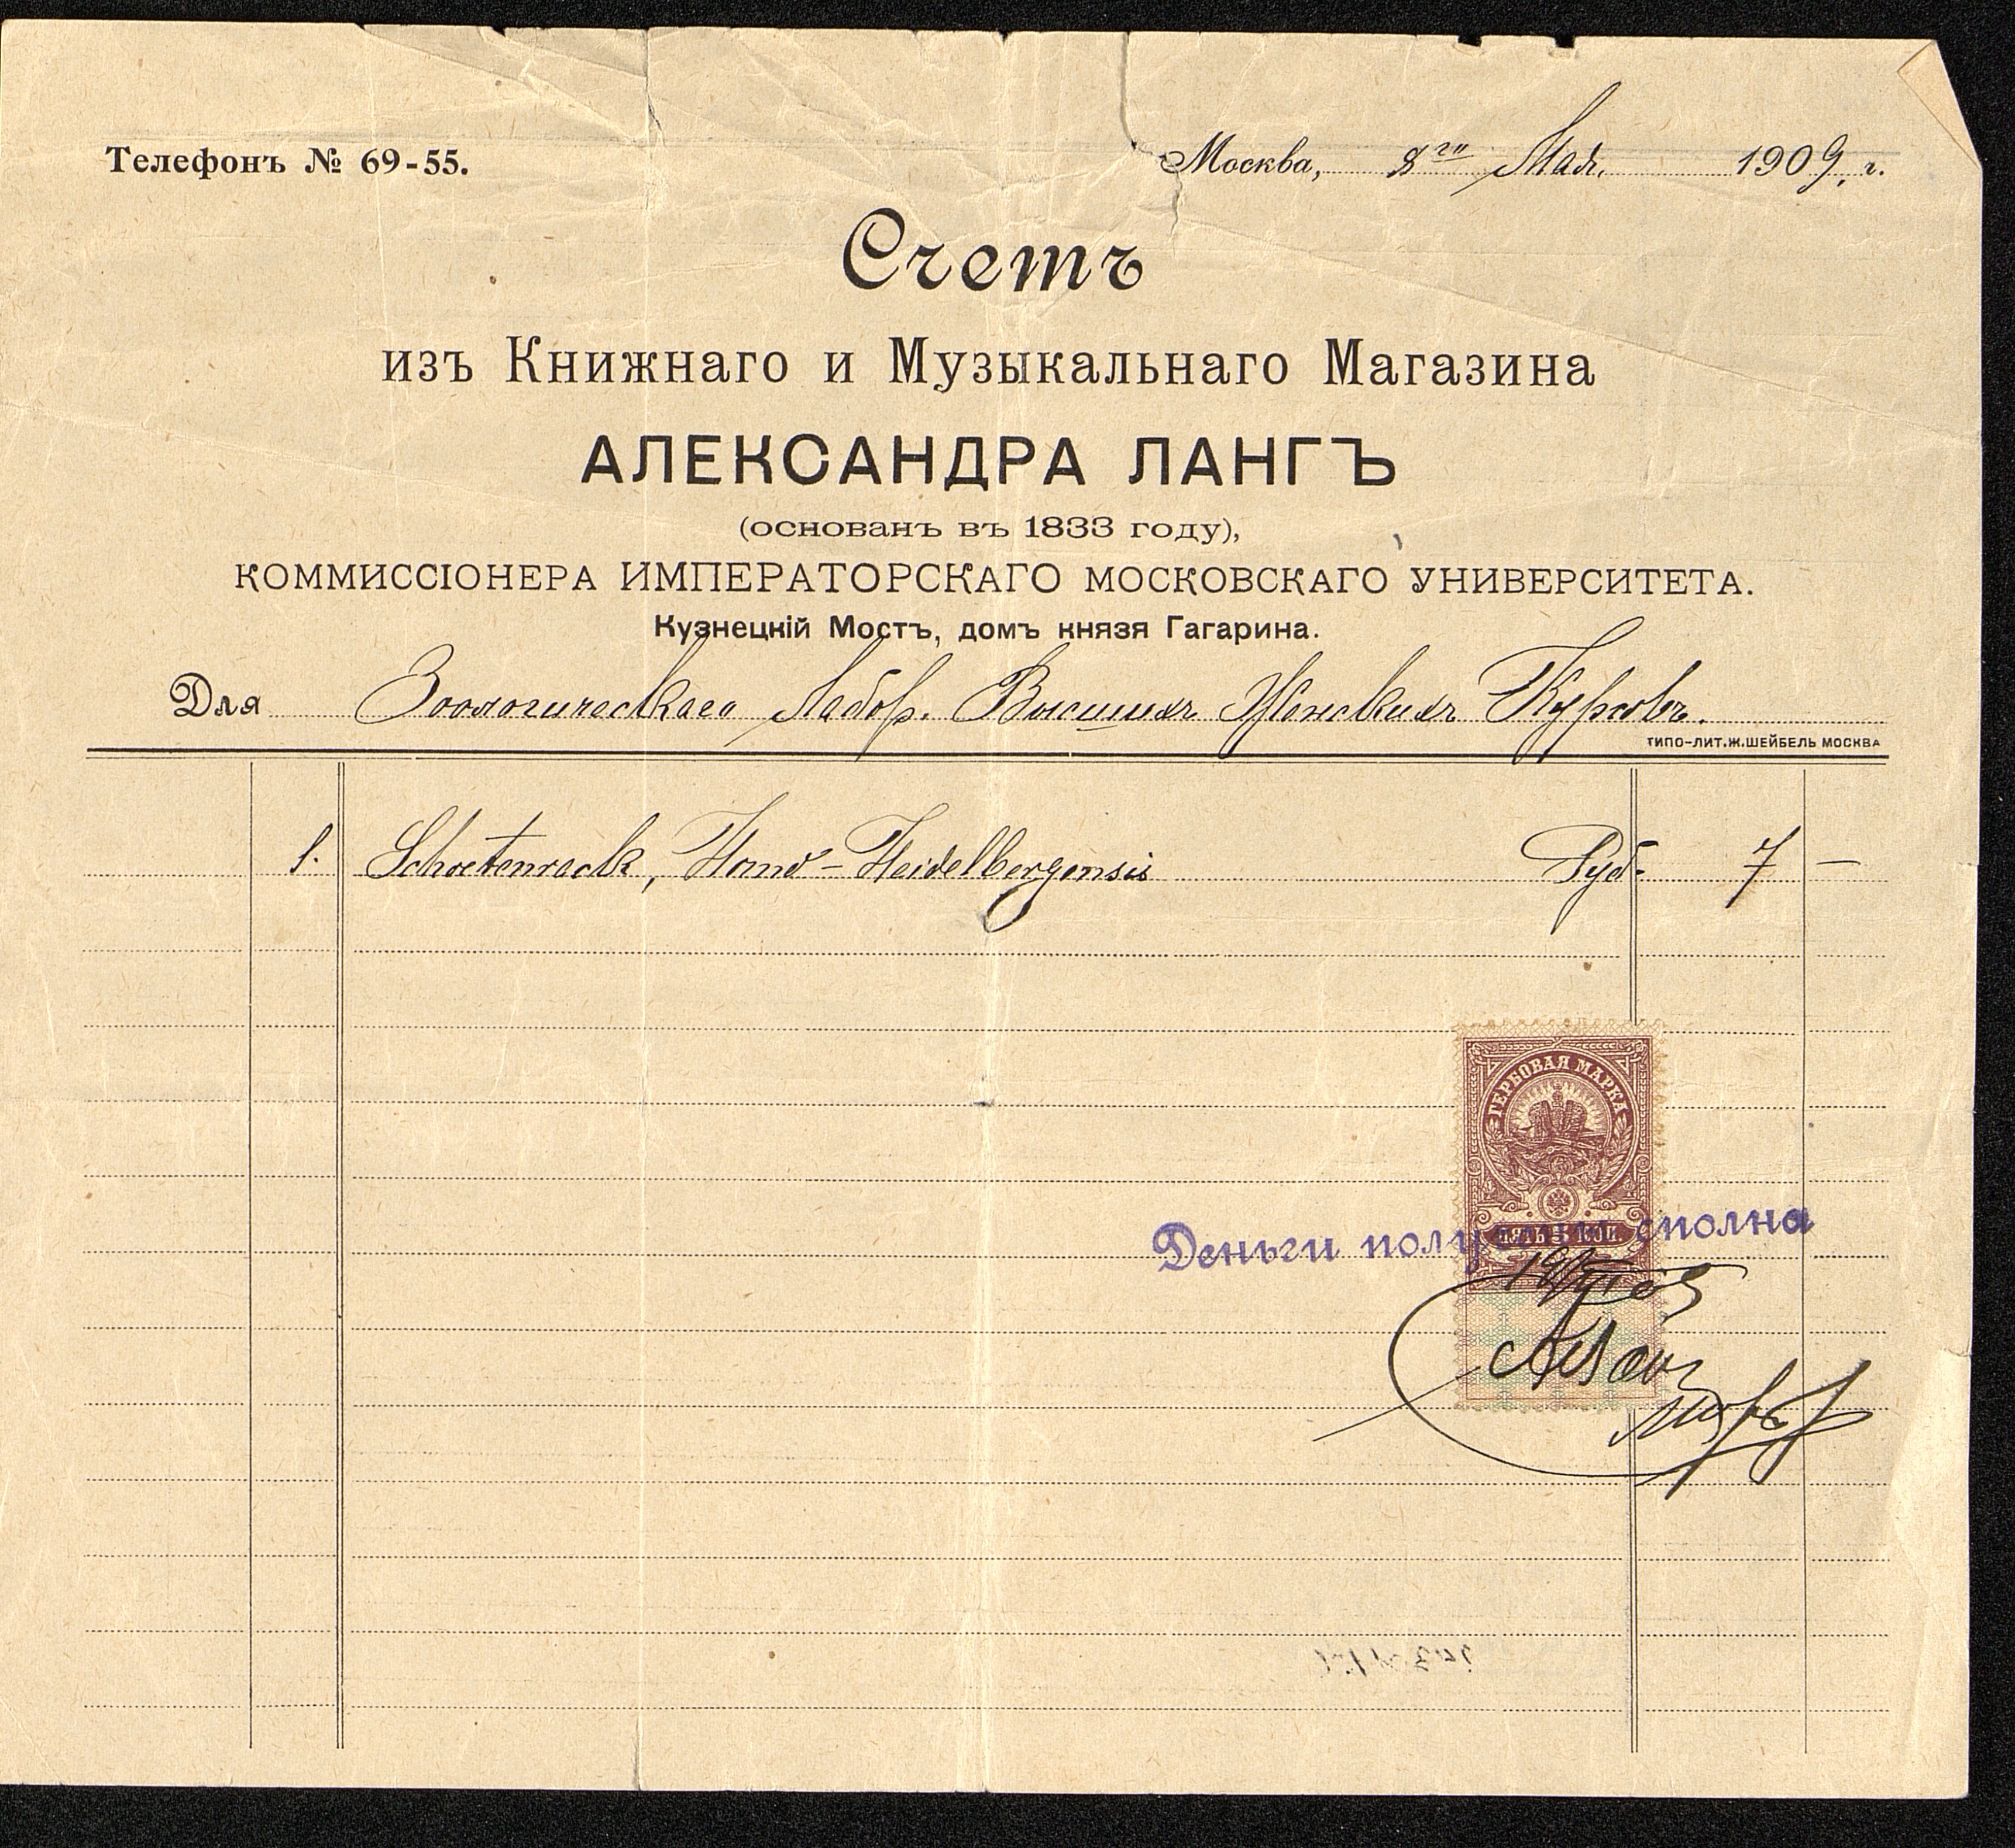 Телефонъ № 69-55.
Москва, 8го Мая. 1909, г.
Счетъ
изъ Книжнаго и Музыкальнаго Магазина
АЛЕКСАНДРА ЛАНГЪ
(основанъ въ 1833 году),
КОММИССІОНЕРА ИМПЕРАТОРСКАГО МОСКОВСКАГО УНИВЕРСИТЕТА.
Кузнецкій Мостъ, домъ князя Гагарина.
Для Зоологическаго Лабор. Высшихъ Женскихъ Курсовъ.
ТИПО-ЛИТ.Ж.ШЕЙБЕЛЬ МОСКВА
1. Schoetensack, Homo-Heidelbergensis Руб. 7 —
ГЕРБОВАЯ МАРКА
Деньги получены сполна